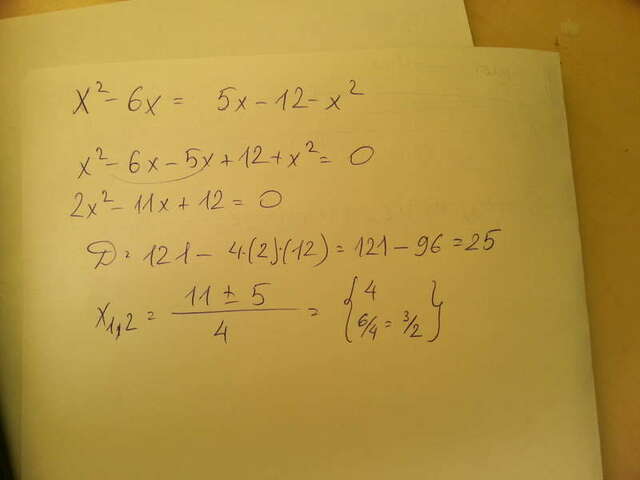 x² - 6x = 5x - 12 - x²
x² - 6x - 5x + 12 + x² = 0
2x² - 11x + 12 = 0
D = 121 - 4·(2)·(12) = 121 - 96 = 25
x₁,₂ = (11 ± 5)/4 = {4, 6/4 = 3/2}